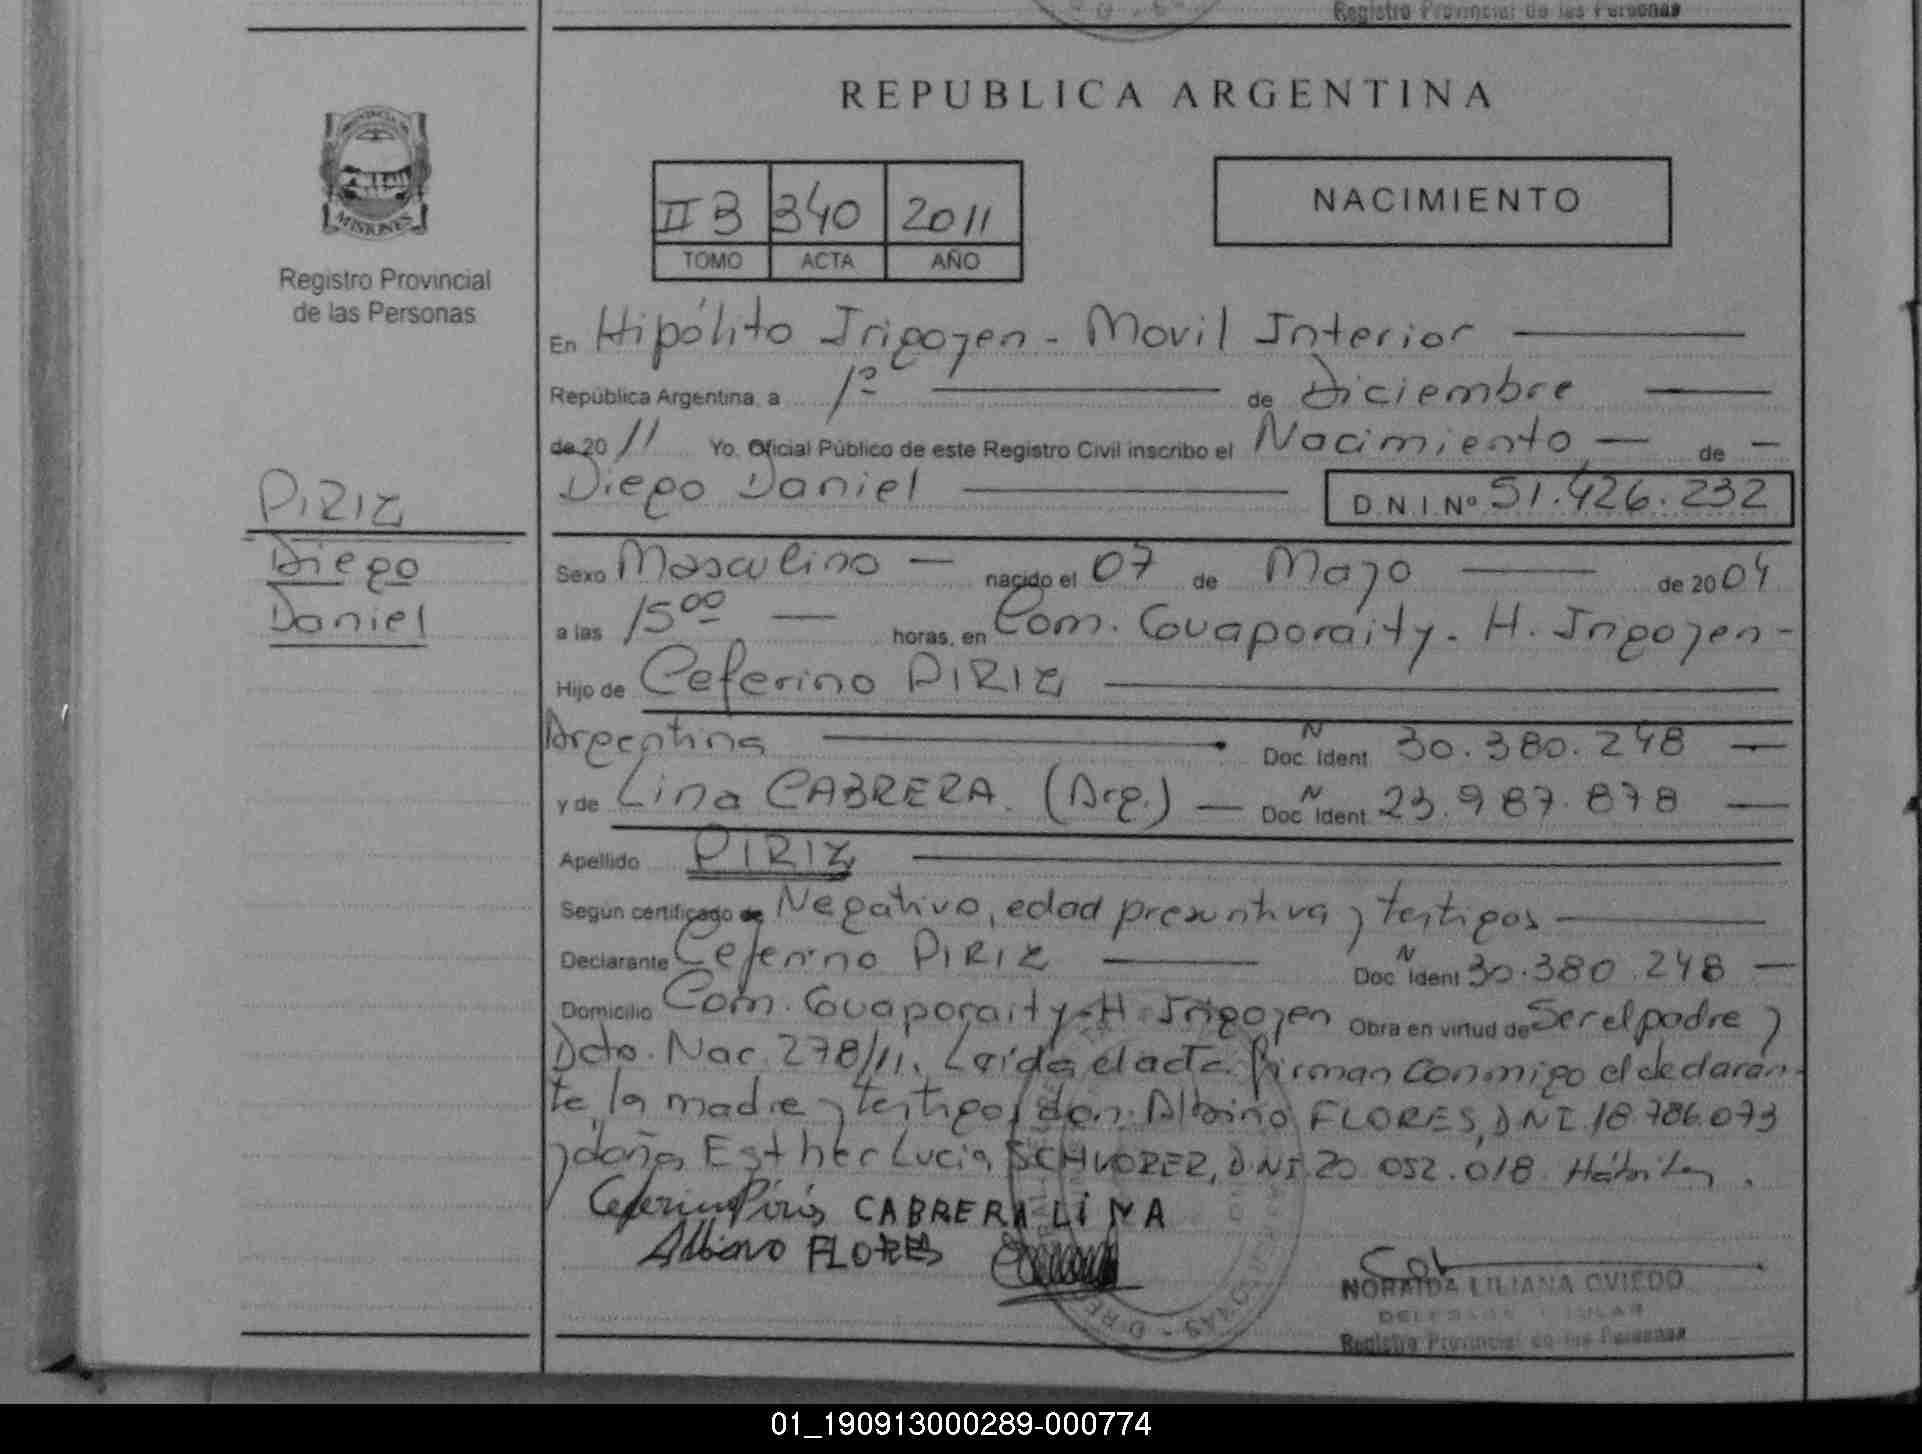 Registro Provincial de las Personas
REPUBLICA ARGENTINA
PROVINCIA DE
MISIONES
Registro Provincial
de las Personas
II B 340 2011
TOMO ACTA AÑO
NACIMIENTO
En Hipólito Irigoyen - Movil Interior
República Argentina, a 1º de Diciembre
de 20 11 Yo, Oficial Público de este Registro Civil inscribo el Nacimiento - de -
Diego Daniel D.N.I.Nº 51.426.232
PIRIZ
Diego
Daniel
Sexo Masculino - nacido el 07 de Mayo de 20 04
a las 15 00 - horas, en Com. Guaporaity - H. Irigoyen -
Hijo de Ceferino PIRIZ
Argentina Doc. Ident. N 30.380.248 -
y de Lina CABRERA. (Arg.) - Doc. Ident. N 23.987.878 -
Apellido PIRIZ
Según certificado de Negativo, edad presuntiva y testigos
Declarante Ceferino PIRIZ Doc. Ident. N 30.380.248 -
Domicilio Com. Guaporaity - H. Irigoyen Obra en virtud de Ser el padre y
Dcto. Nac. 278/11. Leída el acta firman conmigo el declaran-
te, la madre y testigos don: Albino FLORES, DNI. 18.786.073
y doña Esther Lucia SCHVORER, DNI. 20.052.018. Hábiles.
Ceferino Piris CABRERA LINA
Albino FLORES
NORAIDA LILIANA OVIEDO
DELEGADA TITULAR
Registro Provincial de las Personas
01_190913000289-000774